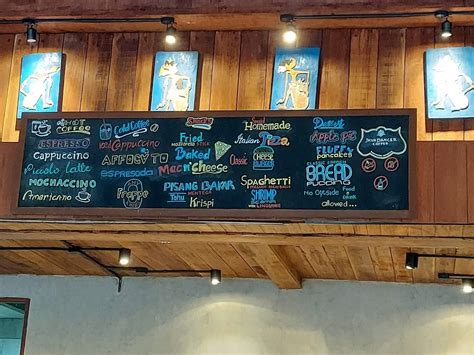 Hot
COFFEE
ESPRESSO
CAPPUCCINO
Piccolo Latte
MOCHACCINO
Americano
Cold Coffee
Cappuccino
AFFOGATO
Espresoda
Frappe
Fried
mozzarella STICK
Baked
MAC N' CHEESE
PISANG BAKAR
Tahu
Krispi
Homemade
Italian Pizza
Classic
CHEESE
BURGER
Spaghetti
SHRIMP
LINGUINE
Dessert
Apple pie
FLUFFY
pancakes
BREAD
PUDDING
No Outside
FOOD
DRINK
allowed...
JAVA DANCER
COFFEE